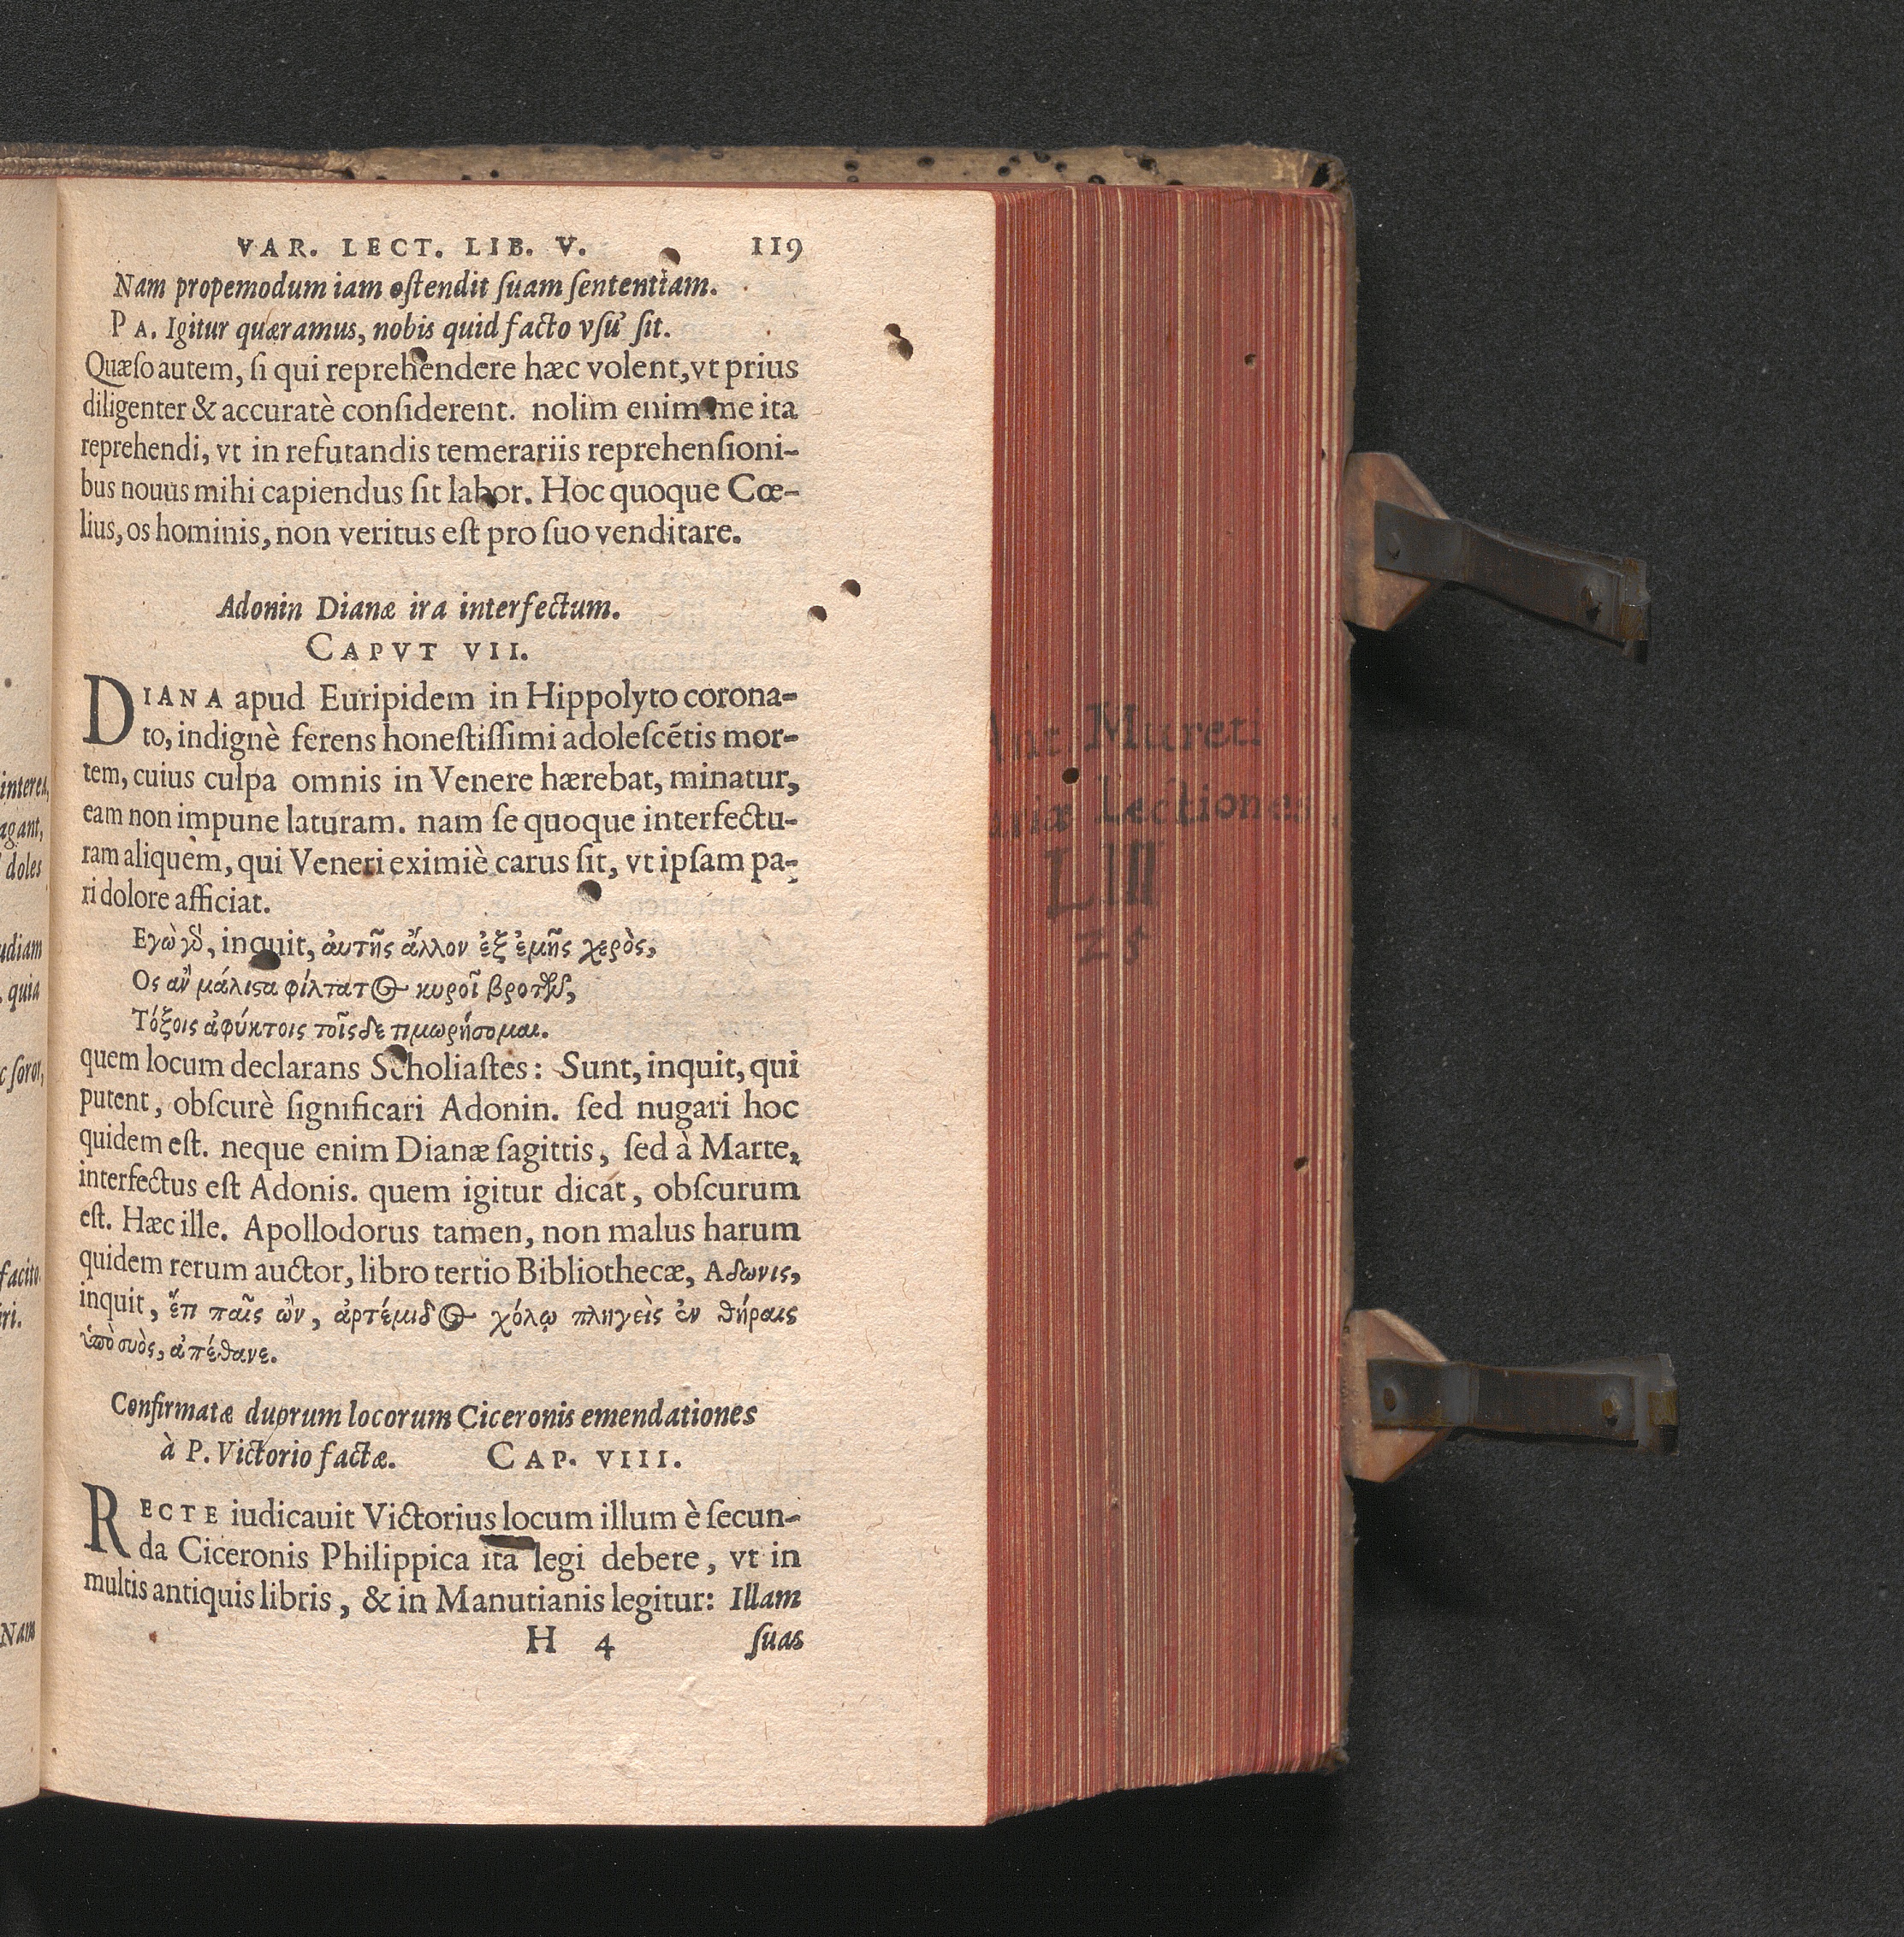 VAR. LECT. LIB. V. 119
Nam propemodum iam ostendit suam sententiam.
PA. Igitur quæramus, nobis quid facto vsu' sit.
Quæso autem, si qui reprehendere hæc volent, vt prius
diligenter & accuratè considerent. nolim enim me ita
reprehendi, vt in refutandis temerariis reprehensioni-
bus nouus mihi capiendus sit labor. Hoc quoque Cœ-
lius, os hominis, non veritus est pro suo venditare.
Adonin Dianæ ira interfectum.
CAPVT VII.
DIANA apud Euripidem in Hippolyto corona-
to, indignè ferens honestissimi adolescẽtis mor-
tem, cuius culpa omnis in Venere hærebat, minatur,
eam non impune laturam. nam se quoque interfectu-
ram aliquem, qui Veneri eximiè carus sit, vt ipsam pa-
ri dolore afficiat.
Εγὼ γδ̀, inquit, ἀυτῆς ἄλλον ἐξ ἐμῆς χερὸς,
Ος αν̓̀ μάλιςα φίλτατος κυροῖ βροτῶν,
Τόξοις ἀφύκτοις τοῖςδε τιμωρήσομαι.
quem locum declarans Scholiastes: Sunt, inquit, qui
putent, obscurè significari Adonin. sed nugari hoc
quidem est. neque enim Dianæ sagittis, sed à Marte,
interfectus est Adonis. quem igitur dicat, obscurum
est. Hæc ille. Apollodorus tamen, non malus harum
quidem rerum auctor, libro tertio Bibliothecæ, Αδωνις,
inquit, ἔτι παῖς ὢν, ἀρτέμιδος χόλῳ πληγεὶς ἐν θήραις
ὑπὸ συὸς, ἀπέθανε.
Confirmatæ duorum locorum Ciceronis emendationes
à P. Victorio factæ. CAP. VIII.
RECTE iudicauit Victorius locum illum è secun-
da Ciceronis Philippica ita legi debere, vt in
multis antiquis libris, & in Manutianis legitur: Illam
H 4 suas
interea,
agant,
doles
udiam
quia
soror,
facito
Nam
Ant Mureti
ariæ Lectiones
LIII
25